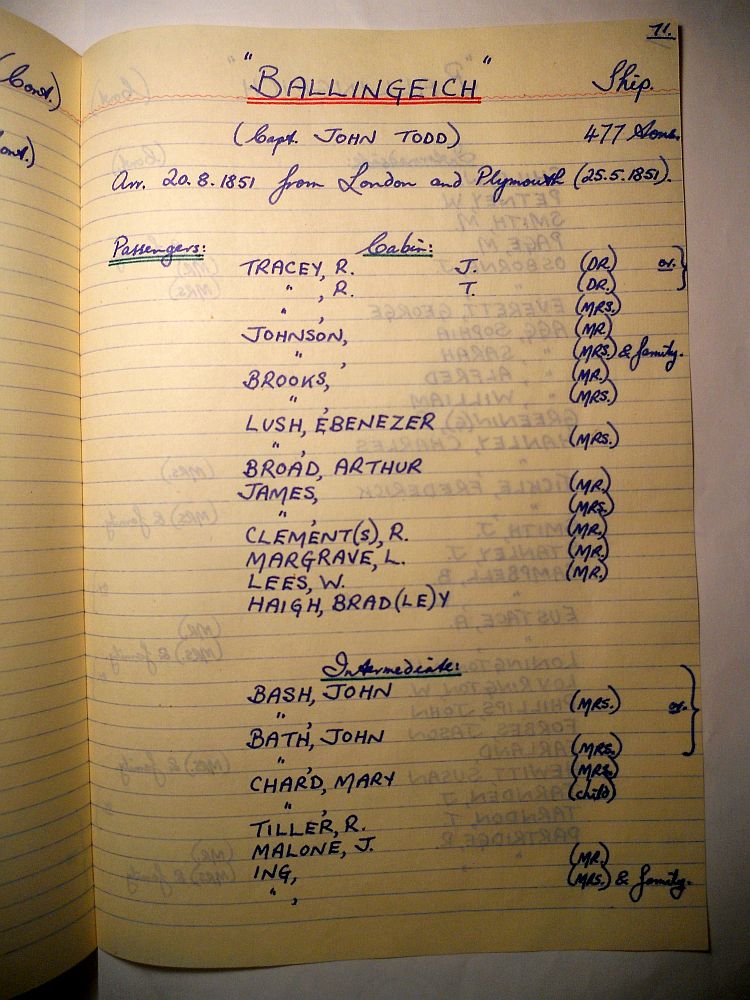 71.
(Cont.)
"BALLINGEICH" Ship.
(Capt. JOHN TODD) 477 tons.
Arr. 20.8.1851 from London and Plymouth (25.5.1851).
Passengers: Cabin:
TRACEY, R. J. (DR.) or.
" , R. T. (DR.)
" , (MRS.)
JOHNSON, (MR.)
" , (MRS.) & family.
BROOKS, (MR.)
" , (MRS.)
LUSH, EBENEZER
" , (MRS.)
BROAD, ARTHUR
JAMES, (MR.)
" , (MRS.)
CLEMENT(S), R. (MR.)
MARGRAVE, L. (MR.)
LEES, W. (MR.)
HAIGH, BRAD(LE)Y
Intermediate:
BASH, JOHN
" , (MRS.) or.
BATH, JOHN
" , (MRS.)
CHARD, MARY (MRS.)
" , (child)
TILLER, R.
MALONE, J.
ING, (MR.)
" , (MRS.) & family.